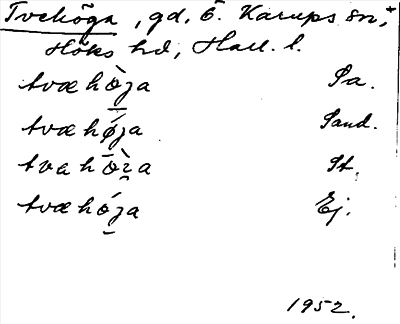 Tvehöga, gd, Ö. Karups sn,
Höks hd, Hall. l.
tvæhö̀ʒa Pa.
tvæhǿʒa Sand.
tvahö̀ʒa St.
tvæhóʒa Ej.
1952.